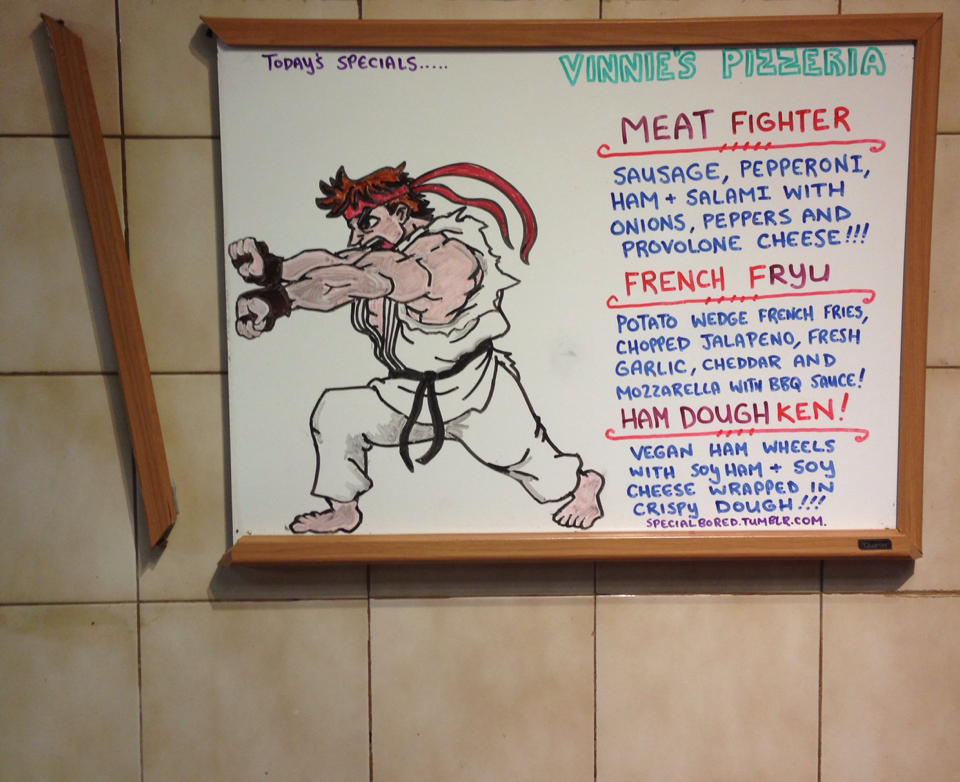 TODAY'S SPECIALS.....
VINNIE'S PIZZERIA
MEAT FIGHTER
SAUSAGE, PEPPERONI,
HAM + SALAMI WITH
ONIONS, PEPPERS AND
PROVOLONE CHEESE!!!
FRENCH FRYU
POTATO WEDGE FRENCH FRIES,
CHOPPED JALAPENO, FRESH
GARLIC, CHEDDAR AND
MOZZARELLA WITH BBQ SAUCE!
HAM DOUGH KEN!
VEGAN HAM WHEELS
WITH SOY HAM + SOY
CHEESE WRAPPED IN
CRISPY DOUGH!!!
SPECIALBORED.TUMBLR.COM.